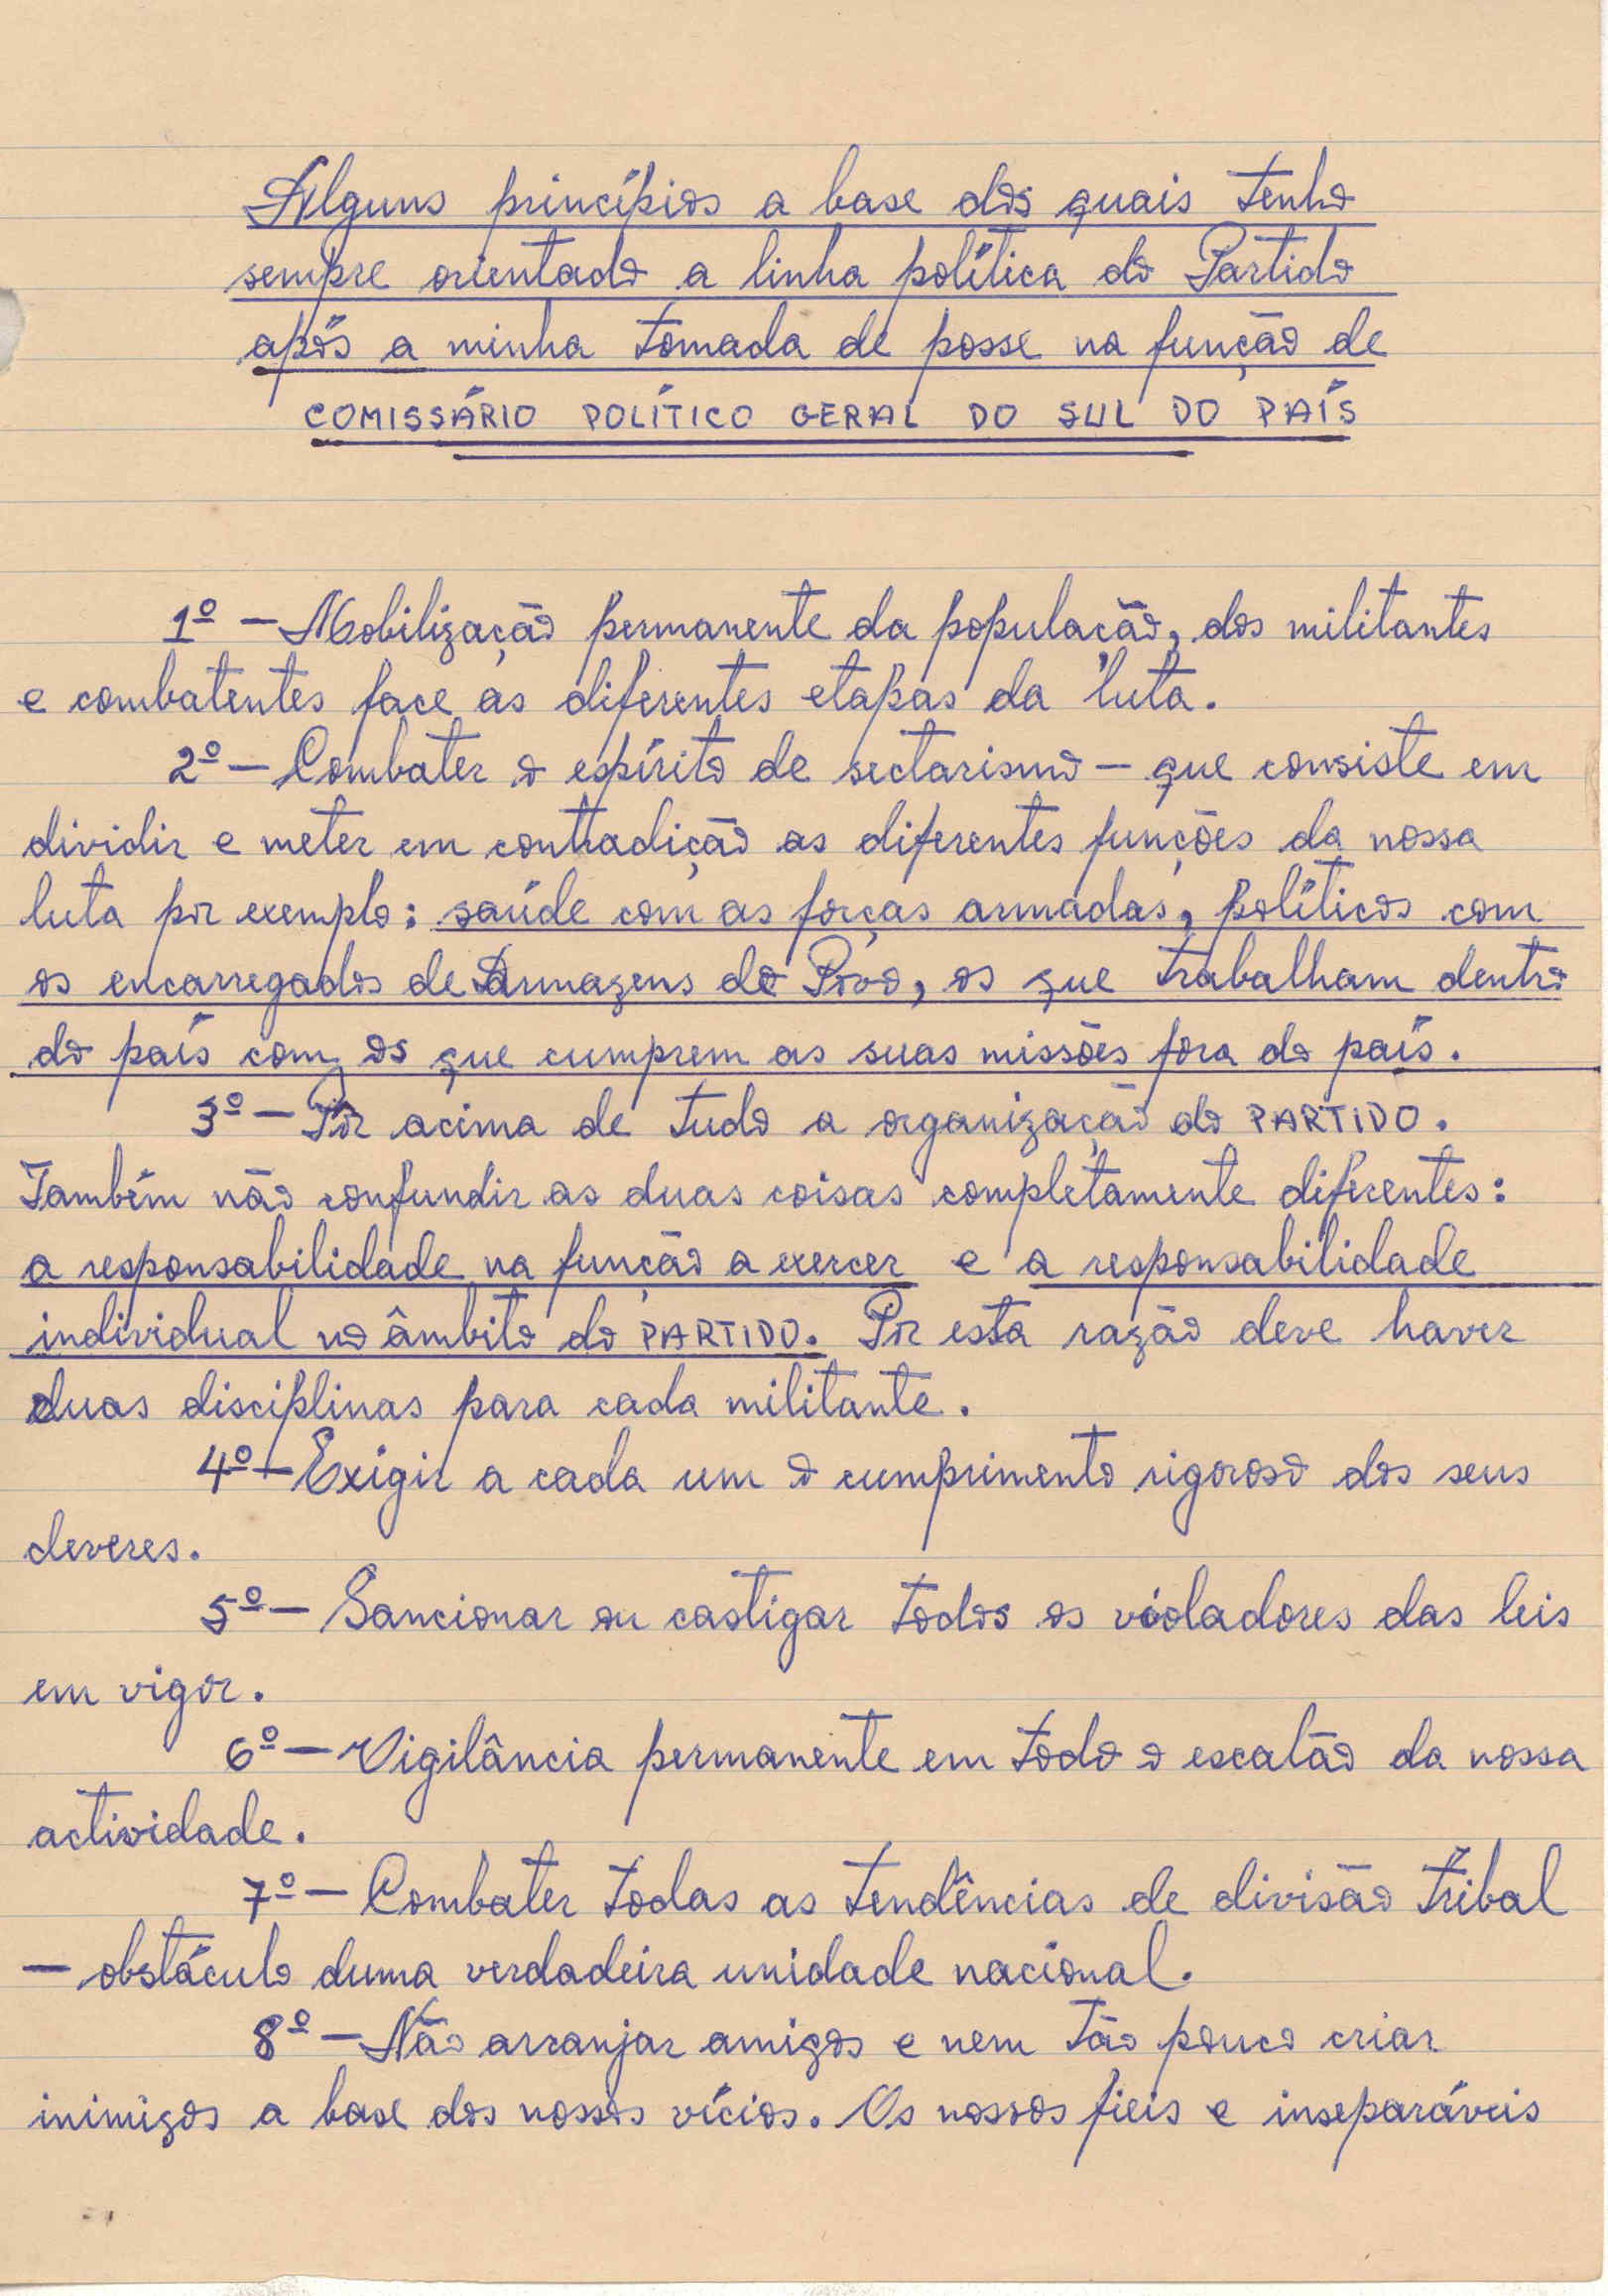 Alguns princípios a base dos quais tenho
sempre orientado a linha política do Partido
após a minha tomada de posse na função de
COMISSÁRIO POLÍTICO GERAL DO SUL DO PAÍS
1º — Mobilização permanente da população, dos militantes
e combatentes face as diferentes etapas da luta.
2º — Combater o espírito de sectarismo — que consiste em
dividir e meter em contradição as diferentes funções da nossa
luta por exemplo: saúde com as forças armadas, políticos com
os encarregados de Armazens do Povo, os que trabalham dentro
do país com os que cumprem as suas missões fora do país.
3º — Pôr acima de tudo a organização do PARTIDO.
Também não confundir as duas coisas completamente diferentes:
a responsabilidade na função a exercer e a responsabilidade
individual no âmbito do PARTIDO. Por esta razão deve haver
duas disciplinas para cada militante.
4º — Exigir a cada um o cumprimento rigoroso dos seus
deveres.
5º — Sancionar ou castigar todos os violadores das leis
em vigor.
6º — Vigilância permanente em todo o escalão da nossa
actividade.
7º — Combater todas as tendências de divisão tribal
— obstáculo duma verdadeira unidade nacional.
8º — Não arranjar amigos e nem tão pouco criar
inimigos a base dos nossos vícios. Os nossos fieis e inseparáveis